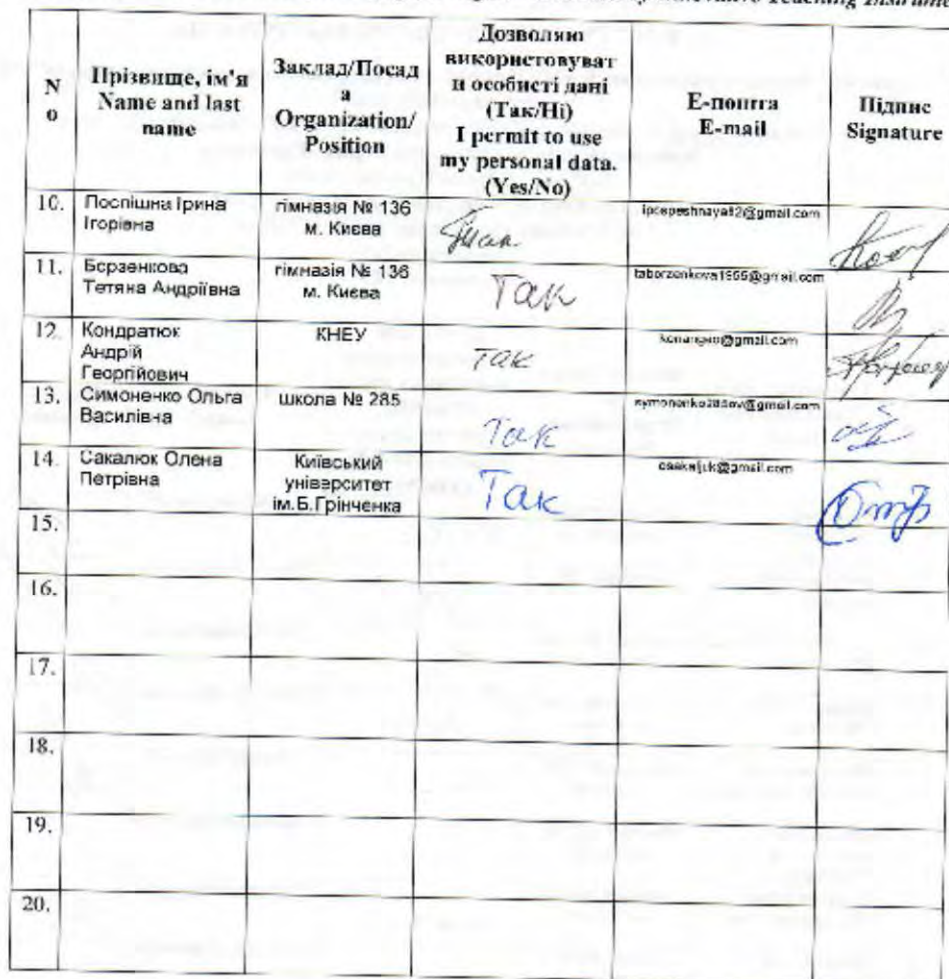 Teaching
N
o
Прізвище, ім'я
Name and last
name
Заклад/Посад
а
Organization/
Position
Дозволяю
використовуват
и особисті дані
(Так/Ні)
I permit to use
my personal data.
(Yes/No)
Е-пошта
E-mail
Підпис
Signature
10.
Поспішна Ірина
Ігорівна
гімназія № 136
м. Києва
Так
11.
Борзенкова
Тетяна Андріївна
гімназія № 136
м. Києва
Так
taborzenkova1955@gmail.com
12.
Кондратюк
Андрій
Георгійович
КНЕУ
Так
13.
Симоненко Ольга
Василівна
школа № 285
Так
symonenko285ov@gmail.com
14.
Сакалюк Олена
Петрівна
Київський
університет
ім.Б.Грінченка
Так
osakaljuk@gmail.com
15.
16.
17.
18.
19.
20.